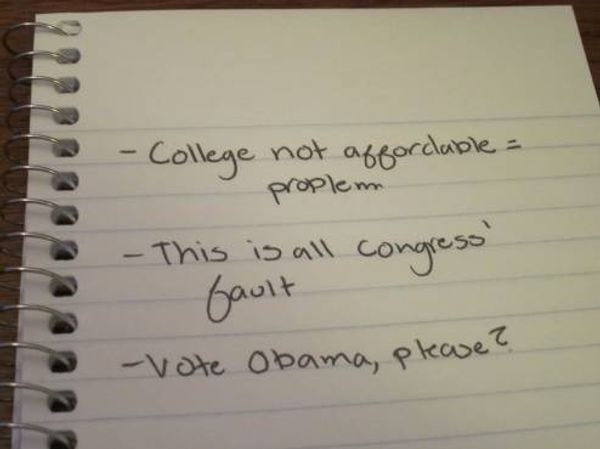 - College not affordable =
problem
- This is all Congress'
fault
- Vote Obama, please?